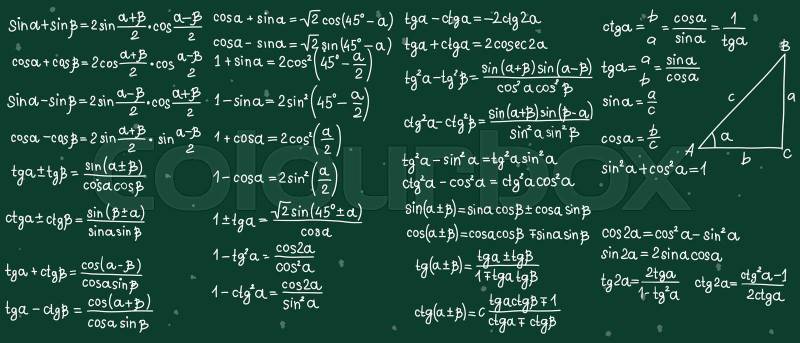 sinα+sinβ=2sin (α+β)/2 • cos (α-β)/2
cosα+cosβ=2cos (α+β)/2 • cos (α-β)/2
sinα-sinβ=2sin (α-β)/2 • cos (α+β)/2
cosα-cosβ=2sin (α+β)/2 • sin (α-β)/2
tgα±tgβ= sin(α±β)/cosαcosβ
ctgα±ctgβ= sin(β±α)/sinαsinβ
tgα+ctgβ= cos(α-β)/cosαsinβ
tgα-ctgβ= cos(α+β)/cosαsinβ
cosα+sinα=√2 cos(45°-α)
cosα-sinα=√2 sin(45°-α)
1+sinα=2cos²(45°-α/2)
1-sinα=2sin²(45°-α/2)
1+cosα=2cos²(α/2)
1-cosα=2sin²(α/2)
1±tgα= √2sin(45°±α)/cosα
1-tg²α= cos2α/cos²α
1-ctg²α= cos2α/sin²α
tgα-ctgα=-2ctg2α
tgα+ctgα=2cosec2α
tg²α-tg²β= sin(α+β)sin(α-β)/cos²αcos²β
ctg²α-ctg²β= sin(α+β)sin(β-α)/sin²αsin²β
tg²α-sin²α=tg²αsin²α
ctg²α-cos²α=ctg²αcos²α
sin(α±β)=sinαcosβ±cosαsinβ
cos(α±β)=cosαcosβ∓sinαsinβ
tg(α±β)= tgα±tgβ/1∓tgαtgβ
ctg(α±β)=c tgαctgβ∓1/ctgα∓ctgβ
ctgα= b/a = cosα/sinα = 1/tgα
tgα= a/b = sinα/cosα
sinα= a/c
cosα= b/c
sin²α+cos²α=1
cos2α=cos²α-sin²α
sin2α=2sinαcosα
tg2α= 2tgα/1-tg²α ctg2α= ctg²α-1/2ctgα
B
c a
A α C
b
colourbox